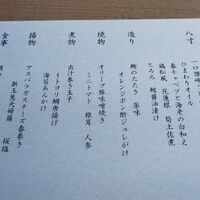 八寸
一口讃岐
ひまわりオイル
春キャベツと海老の白和え
鶏松風 花蓮根 筍土佐煮
とろろ 鮪醤油漬け
造り
鰹のたたき 薬味
オレンジポン酢ジュレがけ
焼物
オリーブ豚味噌焼き
ミニトマト 椎茸 人参
煮物
出汁巻き玉子
イトヨリ鯛唐揚げ
海苔あんかけ
揚物
アスパラガスチーズ春巻き
新玉葱天婦羅 桜塩
食事